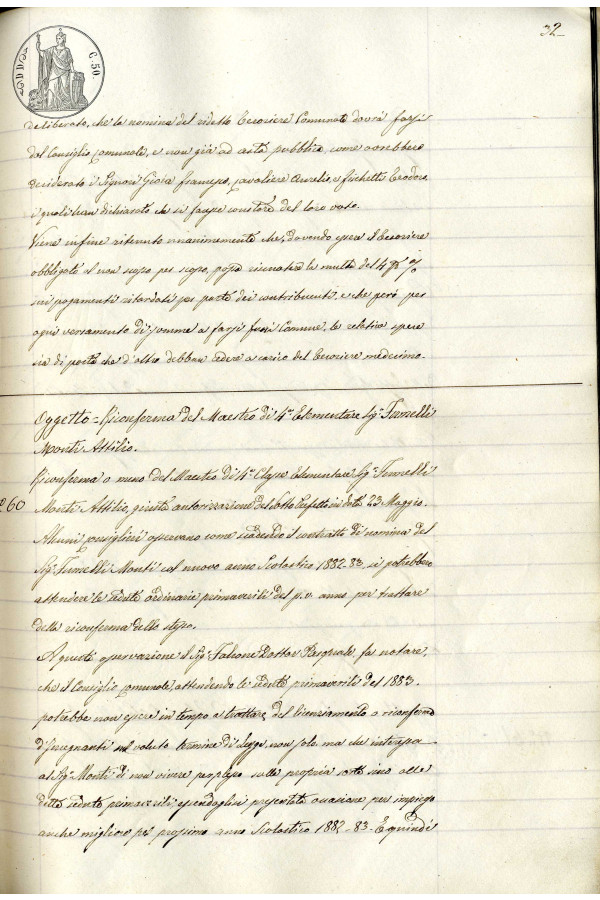 32
C. 50.
deliberato, che la nomina del ridetto Tesoriere Comunale dovrà farsi
dal Consiglio comunale, e non già ad asta pubblica, come avrebbero
desiderato i Signori Gioia Francesco, Cavaliere Aurelio, e Fischetti Teodoro,
i quali han dichiarato che si facesse constare del loro voto.
Viene infine ritenuto unanimemente che, dovendo essere il Tesoriere
obbligato al non scosso per scosso, possa riscuotere la multa del 4 p %
sui pagamenti ritardati per parte dei contribuenti, e che però per
ogni versamento di somme a farsi fuori Comune, le relative spese
sia di posta che d'altro debban cedere a carico del Tesoriere medesimo.
Oggetto = Riconferma del Maestro di 4ª Elementare Sigr Tumelli
Monti Attilio.
Riconferma o meno del Maestro di 4ª Classe Elementare Sigr Tumelli
60 Monti Attilio, giusta autorizzazione del Sotto Prefetto in data 23 Maggio.
Alcuni consiglieri osservano come scadendo il contratto di nomina del
Sigr Tumelli Monti col nuovo anno Scolastico 1882-83, si potrebbero
attendere le sedute ordinarie primaverili del p. v. anno per trattare
della riconferma dello stesso.
A questa osservazione il Sigr Falcone Dottor Pasquale fa notare,
che il Consiglio comunale, attendendo le sedute primaverili del 1883.
potrebbe non essere in tempo a trattare del licenziamento o riconferma
d'Insegnanti nel voluto termine di legge, non solo, ma che interessa
al Sigr Monti di non vivere perplesso sulla propria sorte sino alle
dette sedute primaverili, essendoglisi presentata occasione per impiego
anche migliore pel prossimo anno Scolastico 1882-83 - E quindi